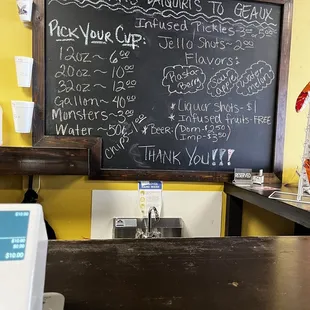 DAIQUIRIS TO GEAUX
Pick Your Cup:
12oz ~ 6.00
20oz ~ 10.00
32oz ~ 12.00
Gallon ~ 40.00
Monsters ~ 3.00
Water ~ 50¢
Chips
Infused Pickles
Jello Shots ~ 2.00
Flavors:
Berry
Sour Apple
Water melon
* Liquor shots - $1
* Infused fruits - FREE
* Beer:
Dom - $2.50
Imp - $3.50
THANK YOU!!!
RESERVED
$10.00